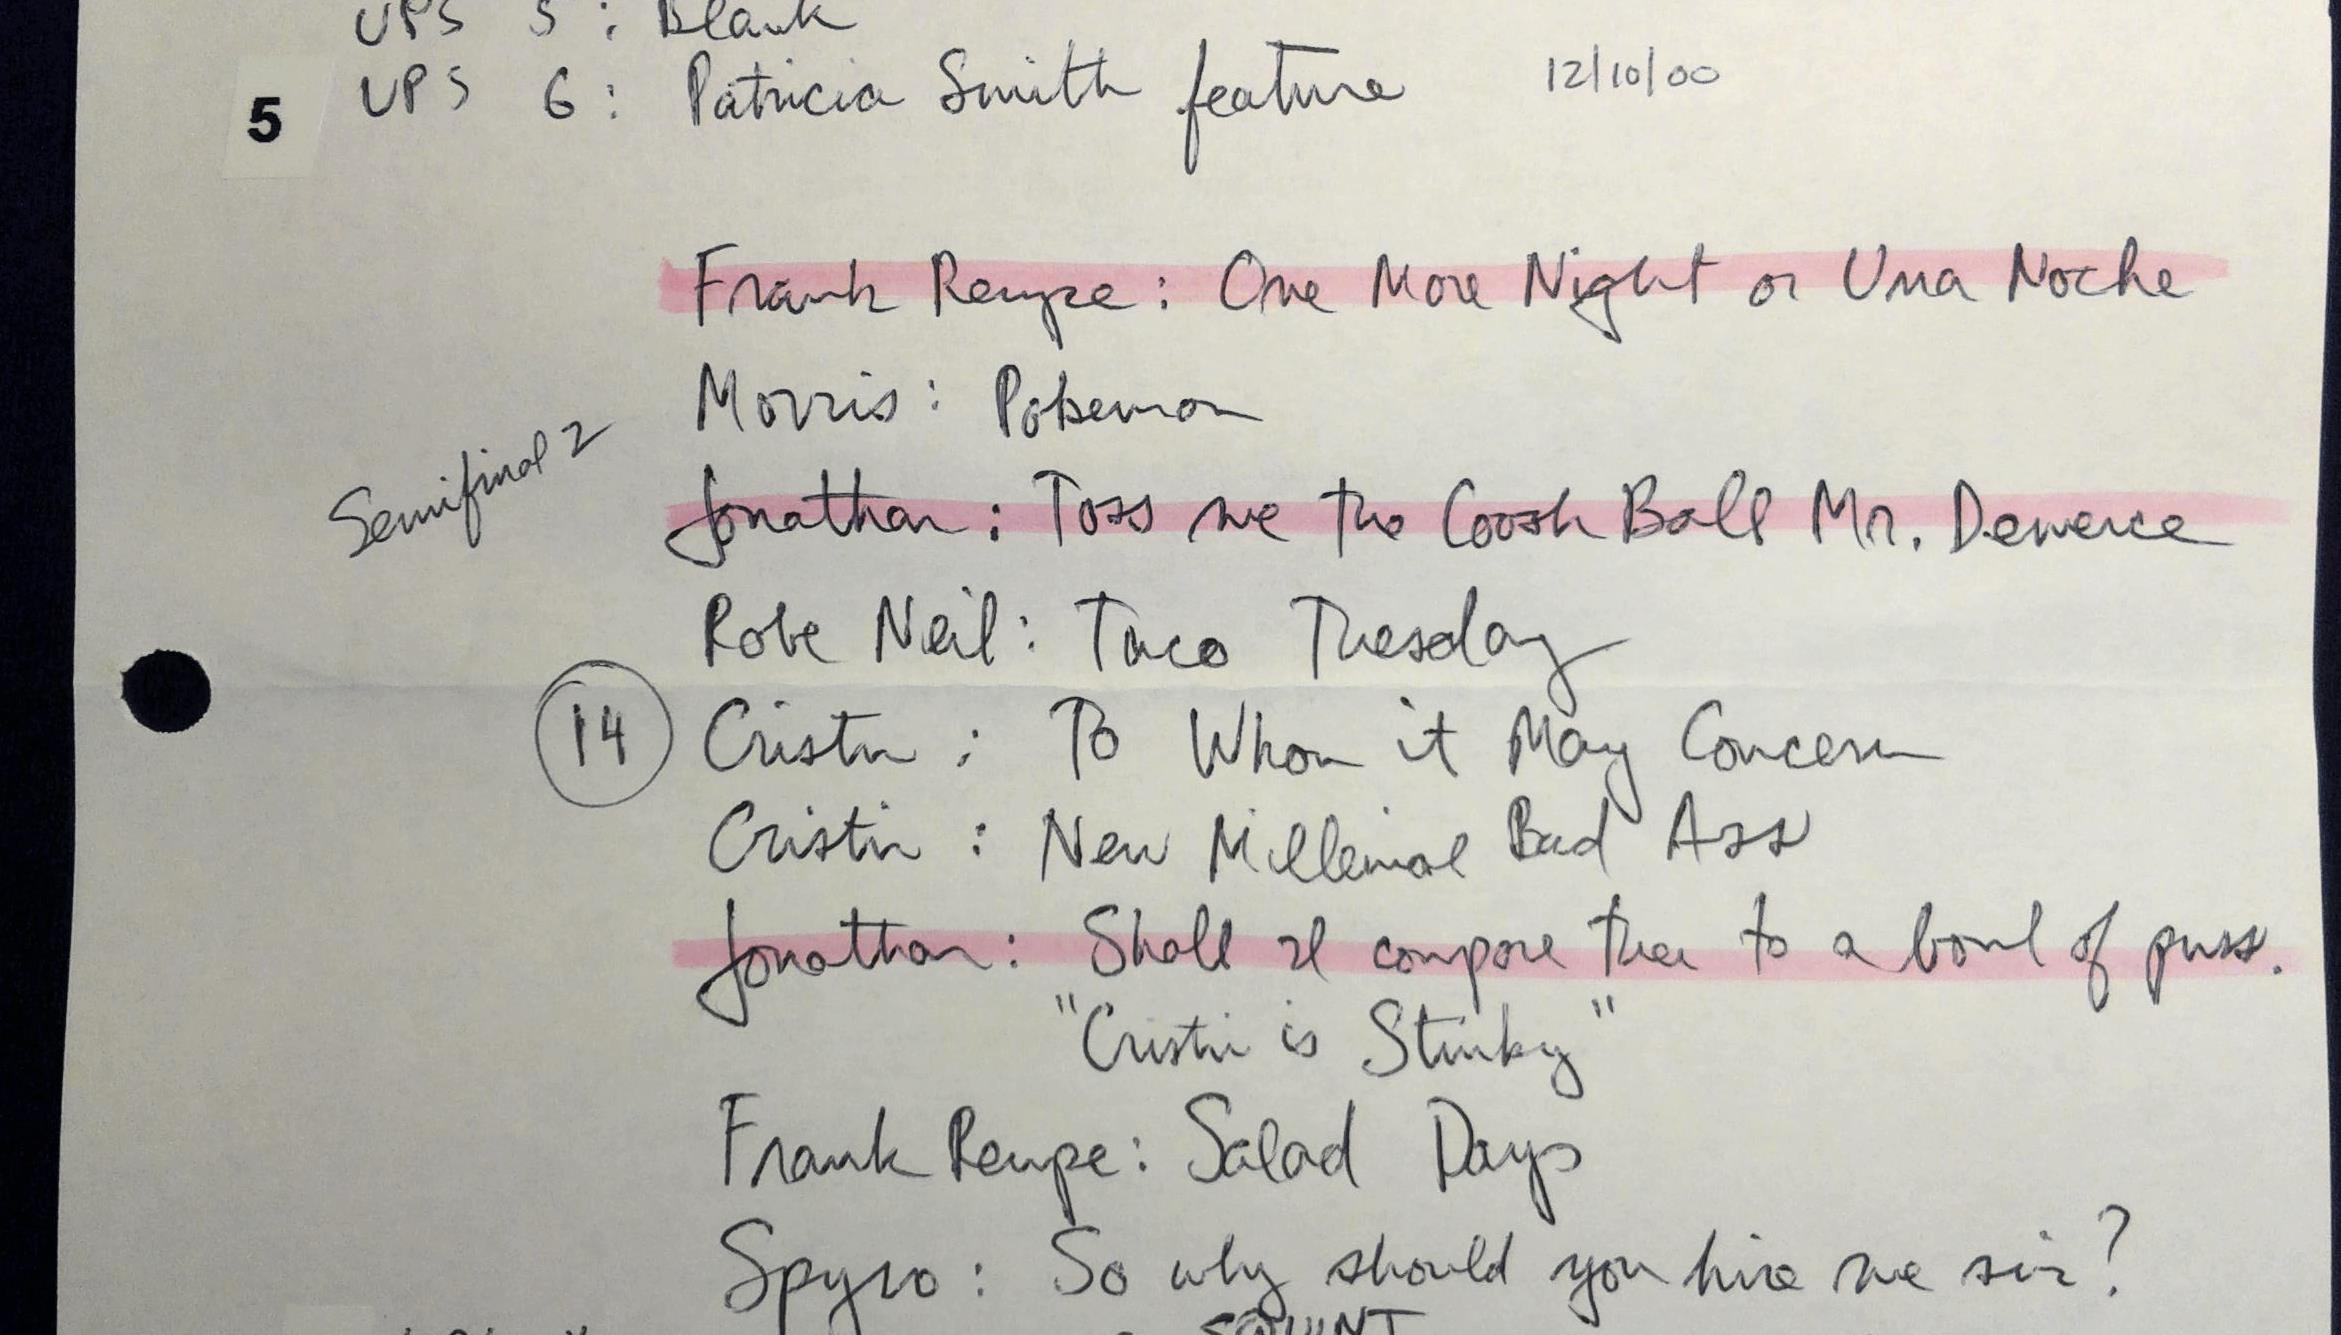 UPS 5 : Blank
5 UPS 6 : Patricia Smith feature 12/10/00
Frank Reupe : One More Night or Una Noche
Morris : Pokemon
Semifinal 2
Jonathan : Toss me the Coosh Ball Mr.
Robe Neil : Taco Tuesday
14 Cristin : To Whom it May Concern
Cristin : New Millenial Bad Ass
Jonathan : Shall I compare thee to a bowl of puss.
"Cristin is Stinky"
Frank Reupe : Salad Days
Spyro : So why should you hire me sir?